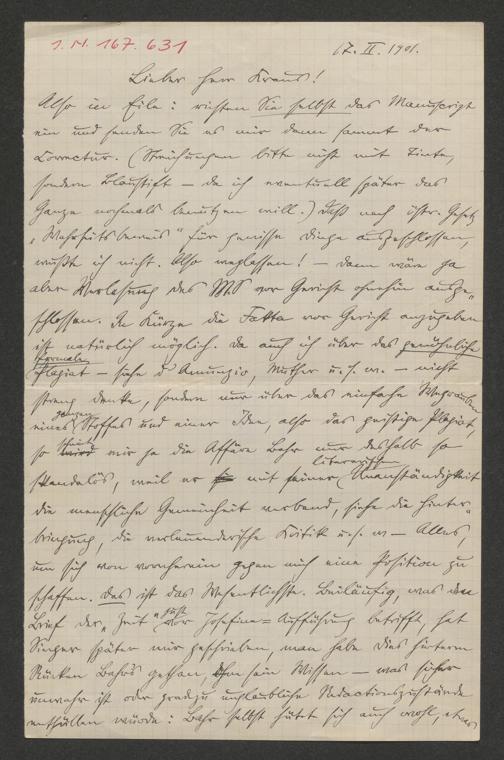 I. N. 167.631
17. II. 1901.
Lieber Herr Kraus!
Also in Eile: richten Sie selbst das Manuscript
ein und senden Sie es mir dann sammt der
Correctur. (Streichungen bitte nicht mit Tinte,
sondern Blaustift – da ich eventuell später das
Ganze nochmals benutzen will.) Daß nach östr. Gesetz
„Wahrheitsbeweis" für gewisse Dinge ausgeschlossen,
wußte ich nicht. Also weglassen! – dann wäre ja
aber Verlesung des MS vor Gericht ohnehin ausge-
schlossen. In Kürze die Fakta vor Gericht anzugeben
ist natürlich möglich. Da auch ich über das gewöhnliche
formale
Plagiat – siehe d'Annunzio, Muther u. s. w. – nicht
streng denke, sondern nur über das einfache Wegrauben
ganzen
eines Stoffes und einer Idee, also das geistige Plagiat,
scheint
so wird mir ja die Affäre Bahr nur deshalb so
literarischen
skandalös, weil er mit seiner Unanständigkeit
die menschliche Gemeinheit verband, siehe die Hinter-
bringung, die verleumderische Kritik u. s. w. – Alles,
um sich von vornherein gegen mich eine Position zu
schaffen. Das ist das Wesentlichste. Beiläufig, was den
Brief der „Zeit" vor Josefine-Aufführung betrifft, hat
Singer später mir geschrieben, man habe dies hinterm
Rücken Bahrs gethan, ohne sein Wissen – was sicher
unwahr ist oder gradzu unglaubliche Redactionszustände
enthüllen würde: Bahr selbst hütet sich auch wohl, etwas